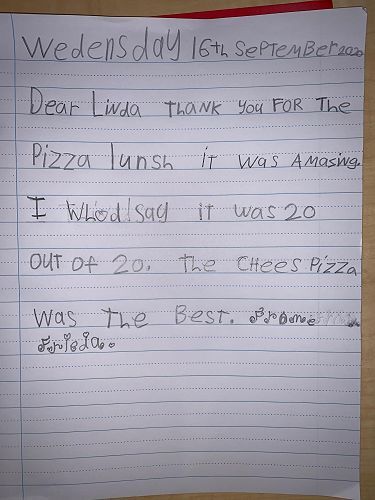 Wedensday 16th September 2020
Dear Linda Thank you for the
Pizza lunsh it was Amasing.
I Whod say it was 20
out of 20. The Chees Pizza
was The Best. Frome
Frieda.